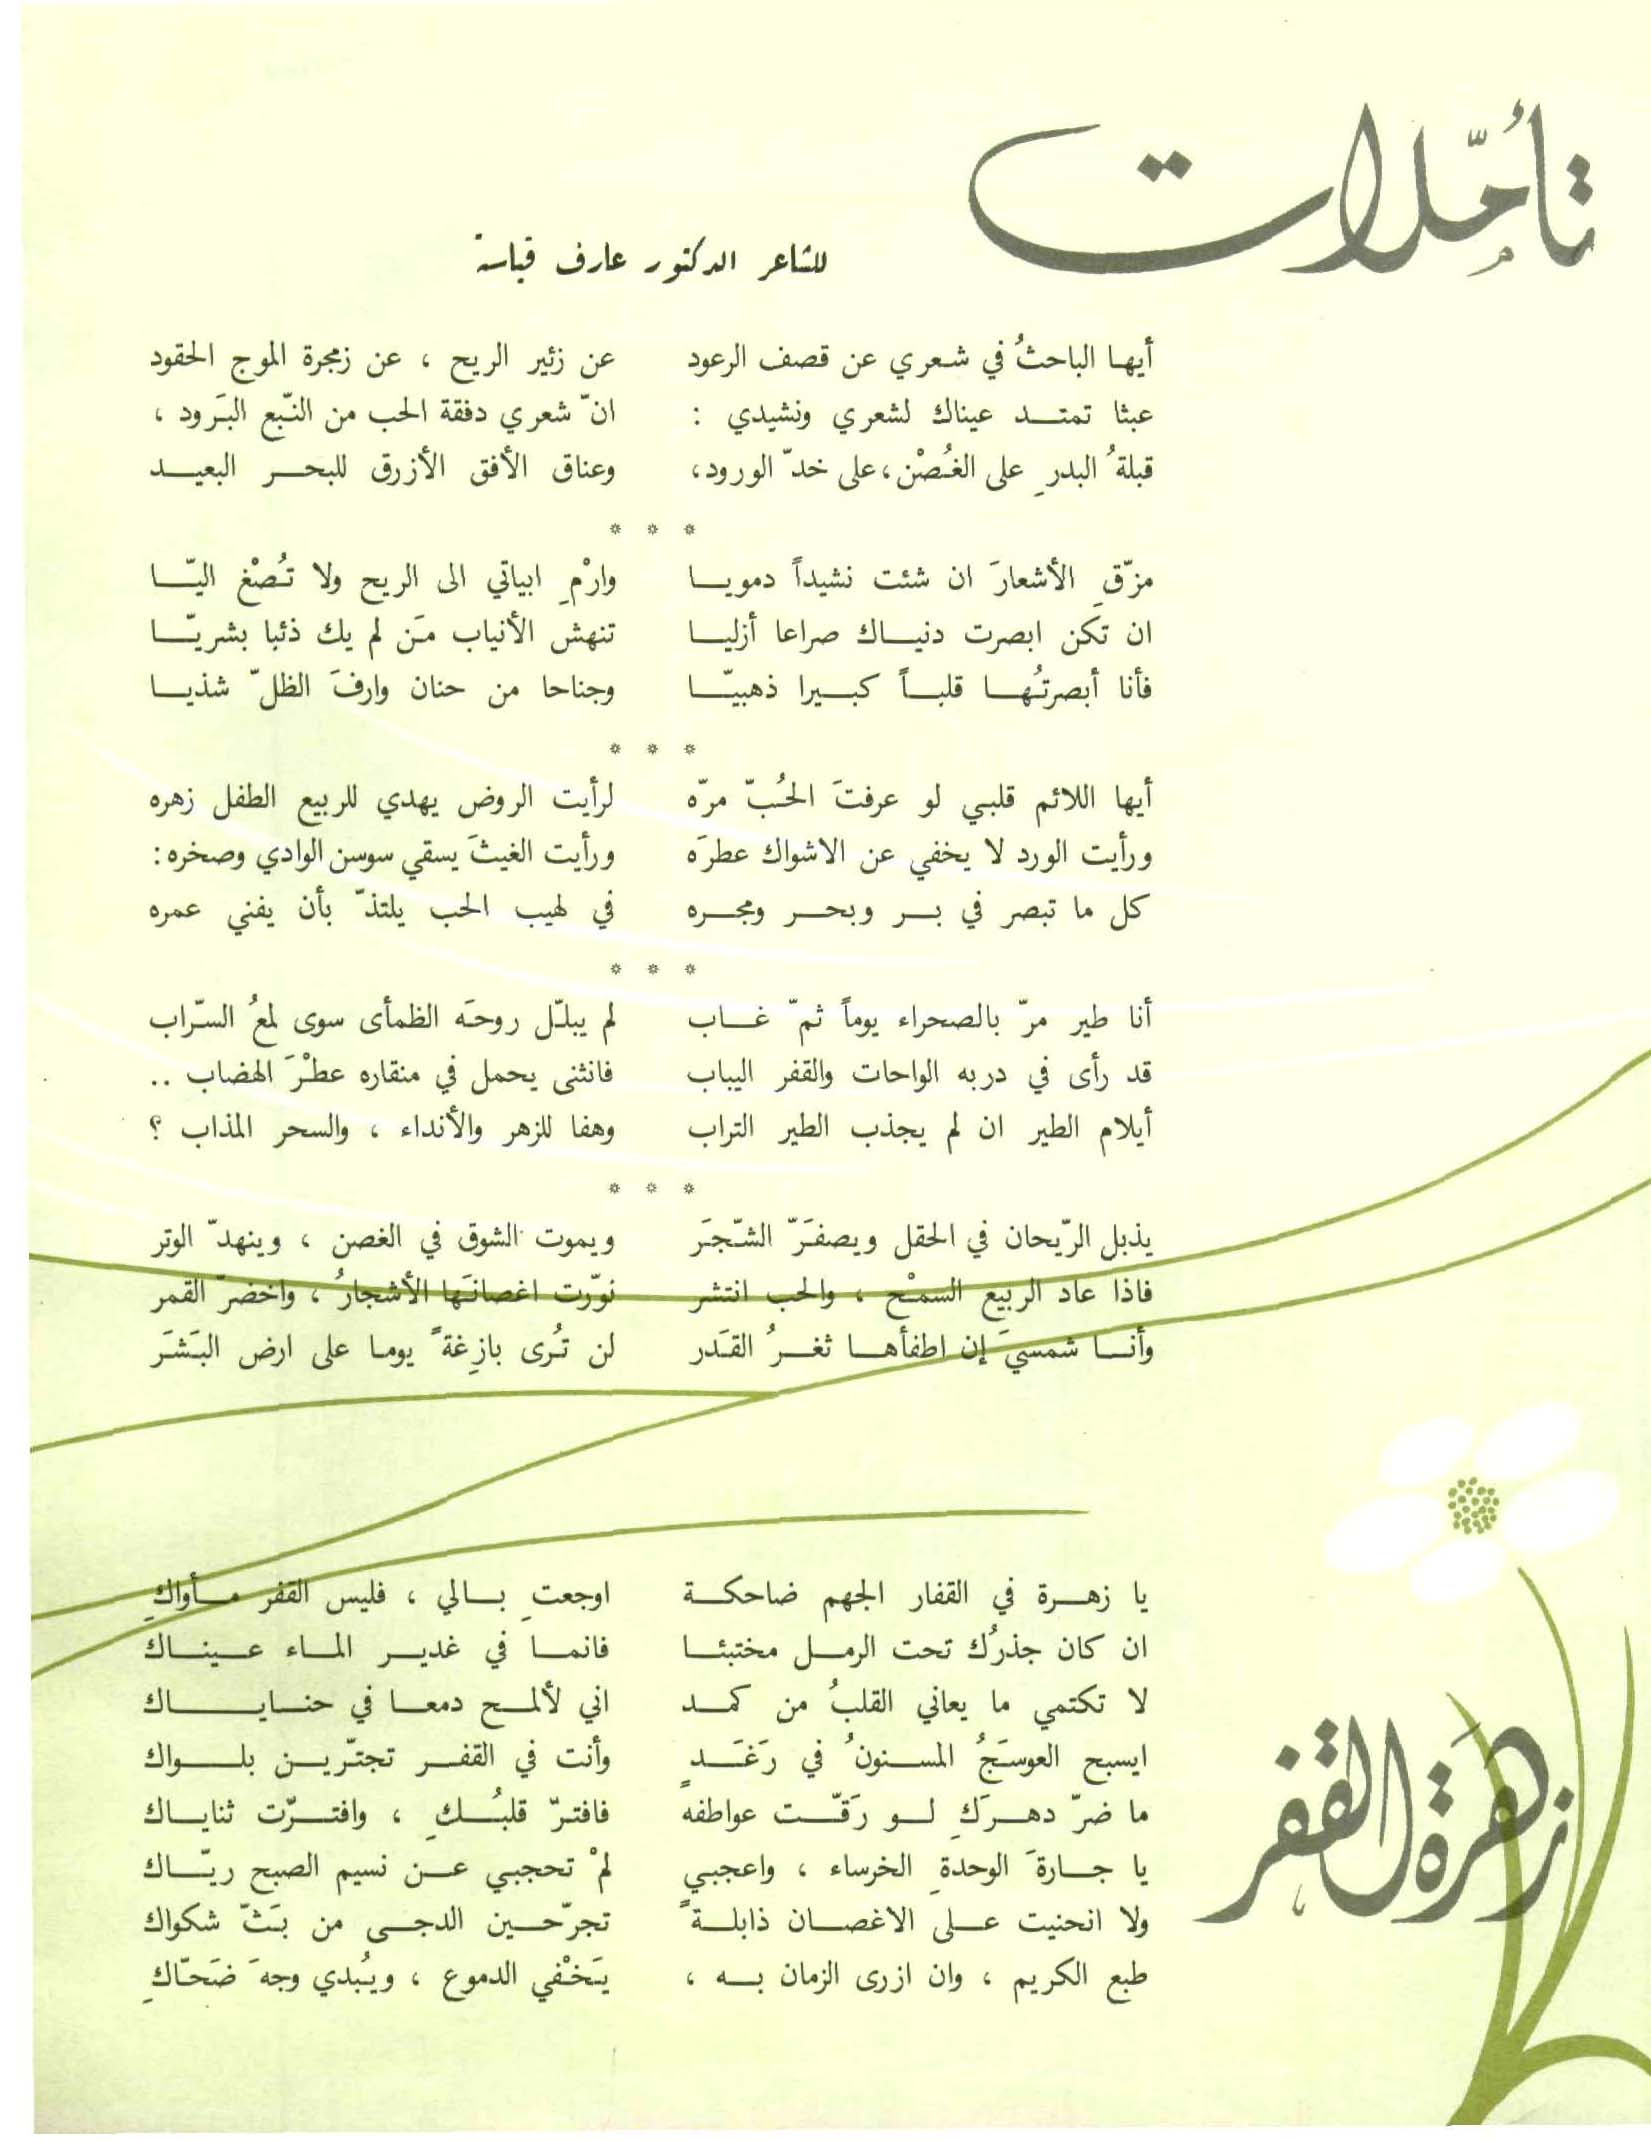 تأمّلات
للشاعر الدكتور عارف قياسة
أيها الباحثُ في شعري عن قصف الرعود عن زئير الريح ، عن زمجرة الموج الحقود
عبثا تمتد عيناك لشعري ونشيدي : انّ شعري دفقة الحب من النّبع البَرود ،
قبلةُ البدرِ على الغُصْن، على خدّ الورود، وعناق الأفق الأزرق للبحر البعيد
* * *
مزّقِ الأشعارَ ان شئت نشيداً دمويا وارْمِ ابياتي الى الريح ولا تُصْغ اليّا
ان تكَن ابصرت دنياك صراعا أزليا تنهش الأنياب مَن لم يك ذئبا بشريّا
فأنا أبصرتُها قلباً كبيرا ذهبيّا وجناحا من حنان وارفَ الظلّ شذيا
* * *
أيها اللائم قلبي لو عرفتَ الحُبّ مرّه لرأيت الروض يهدي للربيع الطفل زهره
ورأيت الورد لا يخفي عن الاشواك عطرَه ورأيت الغيثَ يسقي سوسن الوادي وصخره:
كل ما تبصر في بر وبحر ومجره في لهيب الحب يلتذّ بأن يفني عمره
* * *
أنا طير مرّ بالصحراء يوماً ثمّ غاب لم يبلّل روحَه الظمأى سوى لمعُ السّراب
قد رأى في دربه الواحات والقفر اليباب فانثنى يحمل في منقاره عطْرَ الهضاب ..
أيلام الطير ان لم يجذب الطير التراب وهفا للزهر والأنداء ، والسحر المذاب ؟
* * *
يذبل الرّيحان في الحقل ويصفَرّ الشّجَر ويموت الشوق في الغصن ، وينهدّ الوتر
فاذا عاد الربيع السمْح ، والحب انتشر نوّرت اغصانَها الأشجارُ ، واخضرّ القمر
وأنا شمسيَ إن اطفأها ثغرُ القَدر لن تُرى بازِغةً يوما على ارض البَشَر
زهرَة القفر
يا زهرة في القفار الجهم ضاحكة اوجعتِ بالي ، فليس القفر مأواكِ
ان كان جذرُك تحت الرمل مختبئا فانما في غدير الماء عيناك
لا تكتمي ما يعاني القلبُ من كمد اني لألمح دمعا في حناياك
ايسبح العوسَجُ المسنونُ في رَغَدٍ وأنت في القفر تجترّين بلواك
ما ضرّ دهرَكِ لو رَقّت عواطفه فافترّ قلبُكِ ، وافترّت ثناياك
يا جارةَ الوحدةِ الخرساء ، واعجبي لمْ تحجبي عن نسيم الصبح ريّاك
ولا انحنيت على الاغصان ذابلةً تجرّحين الدجى من بَثّ شكواك
طبع الكريم ، وان ازرى الزمان به ، يَخْفي الدموع ، ويُبدي وجهَ ضَحّاكِ